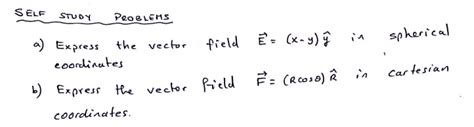 SELF STUDY PROBLEMS
a) Express the vector field E⃗ = (x-y) ŷ in spherical
coordinates
b) Express the vector field F⃗ = (Rcosθ) R̂ in cartesian
coordinates.